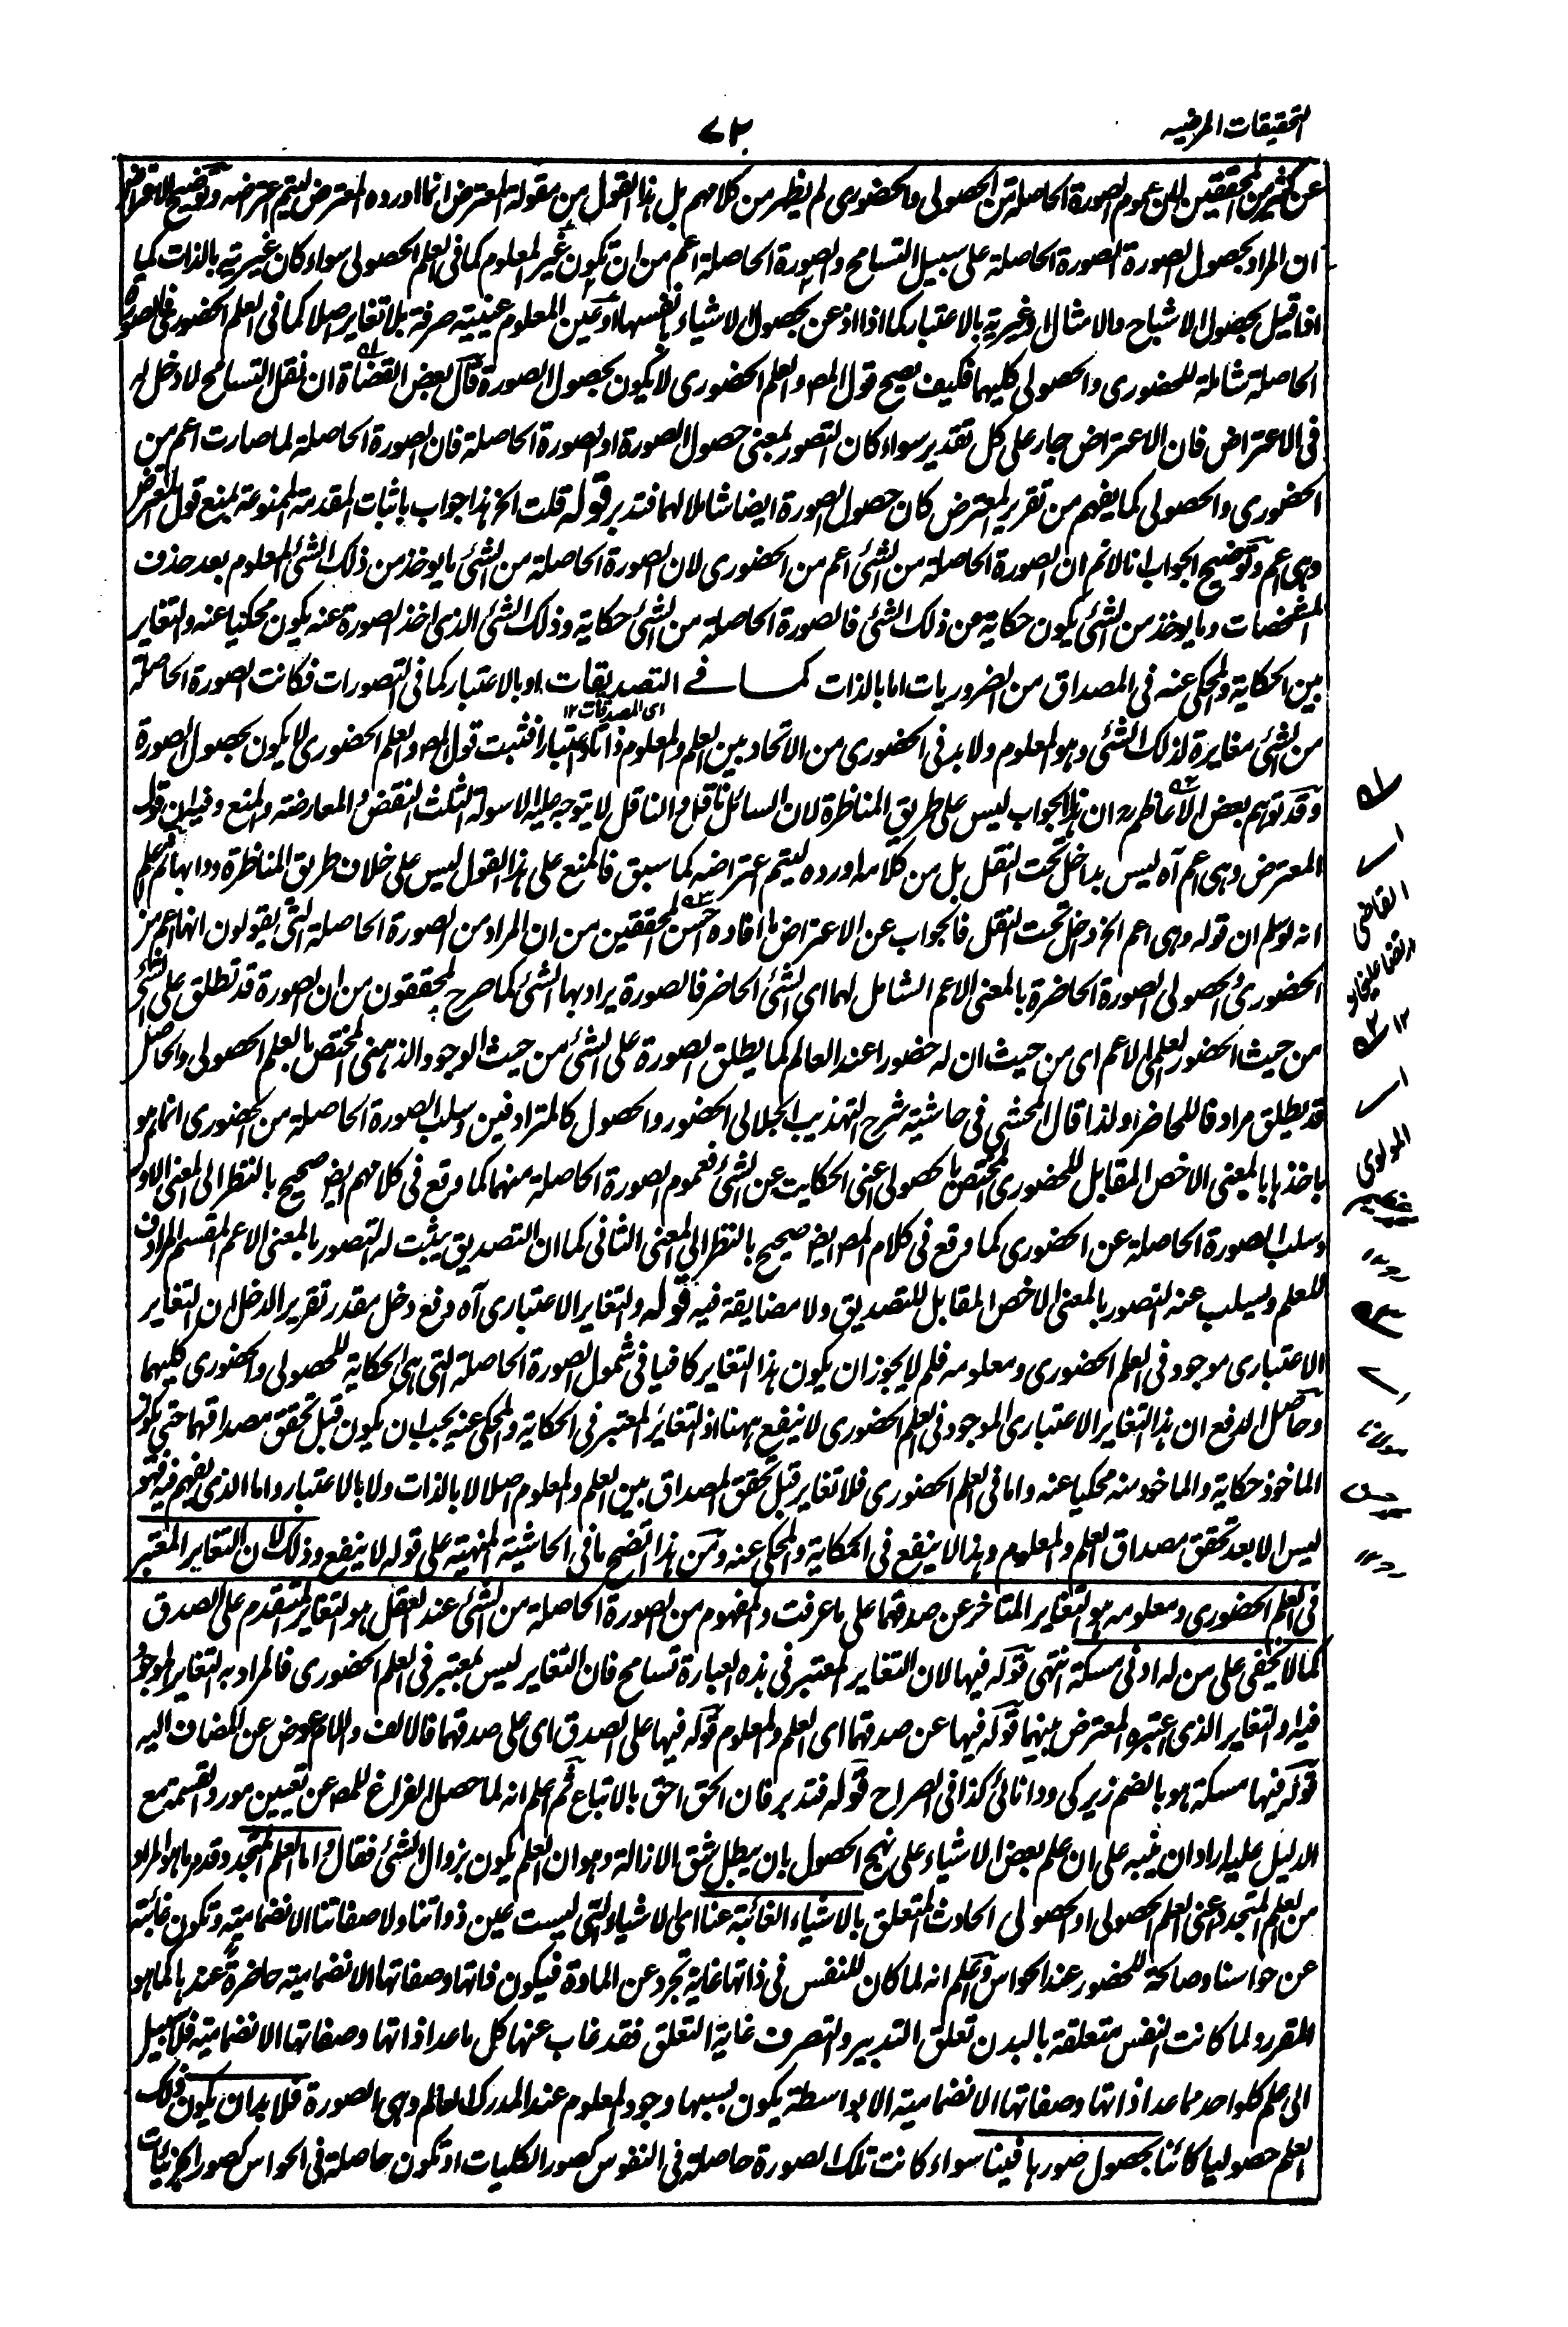 التحقيقات المرضيه
۷۲
عن كثير من المحققين لان عموم الصورة الحاصلة من الحصولى والحضورى لم يظهر من كلامهم بل هذا القول من مقولة المعترض انما اورده المعترض ليتم اعتراضه وتوضيح الاعتراض
ان المراد بحصول الصورة الصورة الحاصلة على سبيل التسامح والصورة الحاصلة اعم من ان تكون غير المعلوم كما فى العلم الحصولى سواء كان غيريته بالذات كما
اذا قيل بحصول الاشباح والامثال او غيرية بالاعتبار كما اذا اذعن بحصول الاشياء بانفسها او عين المعلوم عينية صرفة بلا تغاير اصلا كما فى العلم الحضورى فالصورة
الحاصلة شاملة للحضورى والحصولى كليهما فكيف يصح قول المص والعلم الحضورى لا يكون بحصول الصورة قال بعض القضاة ان نقل التسامح لا دخل له
فى الاعتراض فان الاعتراض جار على كل تقدير سواء كان التصور بمعنى حصول الصورة او الصورة الحاصلة فان الصورة الحاصلة لما صارت اعم من
الحضورى والحصولى كما يفهم من تقرير المعترض كان حصول الصورة ايضا شاملا لهما فتدبر قوله قلت الخ هذا جواب باثبات المقدمة الممنوعة بمنع قول المعترض
وهى اعم وتوضيح الجواب انا لا نم ان الصورة الحاصلة من الشئ اعم من الحضورى لان الصورة الحاصلة من الشئ ما يوخذ من ذلك الشئ المعلوم بعد حذف
المشخصات وما يوخذ من الشئ يكون حكاية عن ذلك الشئ فالصورة الحاصلة من الشئ حكاية وذلك الشئ الذى اخذ الصورة عنه يكون محكيا عنه والتغاير
بين الحكاية والمحكى عنه فى المصداق من الضروريات اما بالذات كما فى التصديقات او بالاعتبار كما فى التصورات فكانت الصورة الحاصلة
اى المصدقات ۱۲
من الشئ مغايرة لذلك الشئ وهو المعلوم ولا بد فى الحضورى من الاتحاد بين العلم والمعلوم ذاتا واعتبارا فثبت قول المص والعلم الحضورى لا يكون بحصول الصورة
وقد توهم بعض الاعاظم ان هذا الجواب ليس على طريق المناظرة لان السائل ناقل والناقل لا يتوجه عليه الاسولة الثلث النقض والمعارضة والمنع وفيه ان قول
المعترض وهى اعم آه ليس بداخل تحت النقل بل من كلامه اورده ليتم اعتراضه كما سبق فالمنع على هذا القول ليس على خلاف طريق المناظرة ودابها ثم اعلم
انه لو سلم ان قوله وهى اعم الخ داخل تحت النقل فالجواب عن الاعتراض ما افاده احسن المحققين من ان المراد من الصورة الحاصلة التى يقولون انها اعم من
الحضورى والحصولى الصورة الحاضرة بالمعنى الاعم الشامل لهما اى الشئ الحاضر فالصورة يراد بها الشئ كما صرح به المحققون من ان الصورة قد تطلق على الشئ
من حيث الحضور العلمى الاعم اى من حيث ان له حضورا عند العالم كما يطلق الصورة على الشئ من حيث الوجود الذهنى المختص بالعلم الحصولى والحاصل
قد يطلق مرادفا للحاضر ولذا قال المحشى فى حاشية شرح التهذيب الجلالى الحضور والحصول كالمترادفين وسلب الصورة الحاصلة من الحضورى انما هو
باخذها بالمعنى الاخص المقابل للحضورى المختص بالحصولى اعنى الحكايت عن الشئ فعموم الصورة الحاصلة منهما كما وقع فى كلامهم ايض صحيح بالنظر الى المعنى الاول
وسلب الصورة الحاصلة عن الحضورى كما وقع فى كلام المص ايض صحيح بالنظر الى المعنى الثانى كما ان التصديق يثبت له التصور بالمعنى الاعم المقسم المرادف
للعلم ويسلب عنه التصور بالمعنى الاخص المقابل للتصديق ولا مضايقة فيه قوله والتغاير الاعتبارى آه دفع دخل مقدر تقرير الدخل ان التغاير
الاعتبارى موجود فى العلم الحضورى ومعلومه فلم لا يجوز ان يكون هذا التغاير كافيا فى شمول الصورة الحاصلة التى هى الحكاية للحصولى والحضورى كليهما
وحاصل الدفع ان هذا التغاير الاعتبارى الموجود فى العلم الحضورى لا ينفع ههنا اذ التغاير المعتبر فى الحكاية والمحكى عنه يجب ان يكون قبل تحقق مصداقهما حتى يكون
الماخوذ حكاية والماخوذ منه محكيا عنه واما فى العلم الحضورى فلا تغاير قبل تحقق المصداق بين العلم والمعلوم اصلا لا بالذات ولا بالاعتبار واما الذى يفهم فيه فهو
ليس الا بعد تحقق مصداق العلم والمعلوم وهذا لا ينفع فى الحكاية والمحكى عنه ومن هذا اتضح ما فى الحاشية المنهية على قوله لا ينفع وذلك لان التغاير المعتبر
فى العلم الحضورى ومعلومه هو التغاير المتاخر عن صدقهما على ما عرفت والمفهوم من الصورة الحاصلة من الشئ عند العقل هو التغاير المتقدم على الصدق
كما لا يخفى على من له ادنى مسكة انتهى قوله فيها لان التغاير المعتبر فى هذه العبارة تسامح فان التغاير ليس بمعتبر فى العلم الحضورى فالمراد به التغاير الموجود
فيه او التغاير الذى اعتبره المعترض بينهما قوله فيها عن صدقهما اى العلم والمعلوم قوله فيها على الصدق اى على صدقهما فالالف واللام عوض عن المضاف اليه
قوله فيها مسكة هو بالضم زيركى ودانائى كذا فى الصراح قوله فتدبر فان الحق احق بالاتباع ثم اعلم انه لما حصل الفراغ للمص عن تعيين مورد القسمة مع
الدليل عليه اراد ان ينبه على ان علم بعض الاشياء على نهج الحصول بان يبطل شق الازالة وهو ان العلم يكون بزوال الشئ فقال واما العلم المتجدد قد مر ما هو المراد
من العلم المتجدد اعنى العلم الحصولى او الحصولى الحادث المتعلق بالاشياء الغائبة عنا اى الاشياء التى ليست عين ذواتنا ولا صفاتنا الانضمامية وتكون غائبة
عن حواسنا وصالحة للحضور عند الحواس واعلم انه لما كان للنفس فى ذاتها غاية تجرد عن المادة فيكون ذاتها وصفاتها الانضمامية حاضرة عندها كما هو
المقرر ولما كانت النفس متعلقة بالبدن تعلق التدبير والتصرف غاية التعلق فقد غاب عنها كل ما عدا ذاتها وصفاتها الانضمامية فلا سبيل
الى علم كل واحد مما عدا ذاتها وصفاتها الانضمامية الا بواسطة يكون بسببها وجود المعلوم عند المدرك العالم وهى الصورة فلا بد ان يكون ذلك
العلم حصوليا كائنا بحصول صورها فينا سواء كانت تلك الصورة حاصلة فى النفوس كصور الكليات او تكون حاصلة فى الحواس كصور الجزئيات
القاضى
۱۲
المولوى